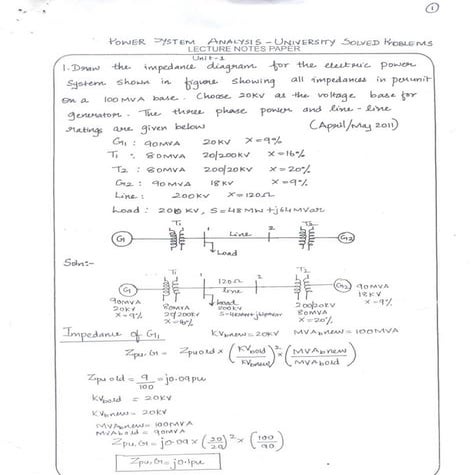 1
POWER SYSTEM ANALYSIS - UNIVERSITY SOLVED PROBLEMS
LECTURE NOTES PAPER
Unit-1
1. Draw the impedance diagram for the electric power
system shown in figure showing all impedances in perunit
on a 100MVA base. Choose 20KV as the voltage base for
generator. The three phase power and line-line
ratings are given below (April/May 2011)
G1 : 90MVA 20KV X=9%
T1 : 80MVA 20/200KV X=16%
T2 : 80MVA 200/20KV X=20%
G2 : 90MVA 18KV X=9%
Line : 200KV X=120Ω
Load : 200KV, S=48MW+j64MVar
T1 1 Line 2 T2
G1 G2
Load
Soln:-
T1 1 120Ω 2 T2
G1 line G2 90MVA
90MVA 80MVA load 200/20KV 18KV
20KV 20/200KV 200KV 80MVA X=9%
X=9% X=16% S=48MW+j64MVar X=20%
Impedance of G1 KVbnew=20KV MVAbnew=100MVA
Zpu.G1 = Zpuold × (KVbold/KVbnew)² × (MVAbnew/MVAbold)
Zpuold = 9/100 = j0.09pu
KVbold = 20KV
KVbnew = 20KV
MVAbnew=100MVA
MVAbold = 90MVA
Zpu.G1=j0.09×(20/20)²×(100/90)
Zpu.G1=j0.1pu